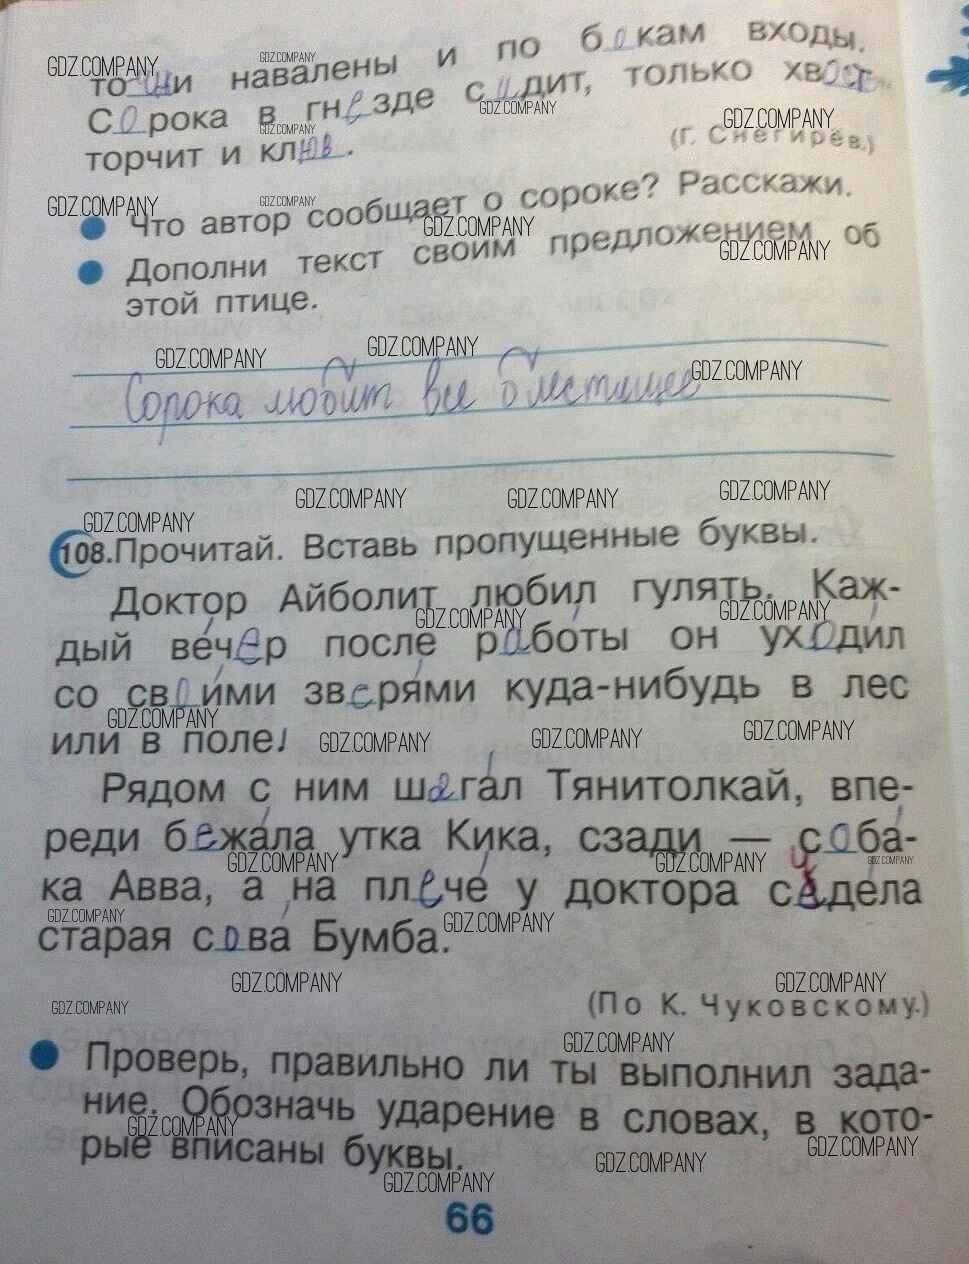 то щи навалены и по бокам входы.
Сорока в гнезде сидит, только хвост
торчит и клюв.
(Г. Снегирёв.)
Что автор сообщает о сороке? Расскажи.
Дополни текст своим предложением об
этой птице.
Сорока любит все блестящее
108. Прочитай. Вставь пропущенные буквы.
Доктор Айболит любил гулять. Каж-
дый ве́чер после рабо́ты он уходи́л
со свои́ми зверя́ми куда-нибудь в лес
или в поле.
Рядом с ним шага́л Тянитолкай, впе-
реди бежа́ла утка Кика, сзади — соба́-
ка Авва, а на плече́ у доктора сиде́ла
старая сова́ Бумба.
(По К. Чуковскому.)
Проверь, правильно ли ты выполнил зада-
ние. Обозначь ударение в словах, в кото-
рые вписаны буквы.
66
GDZ.COMPANY